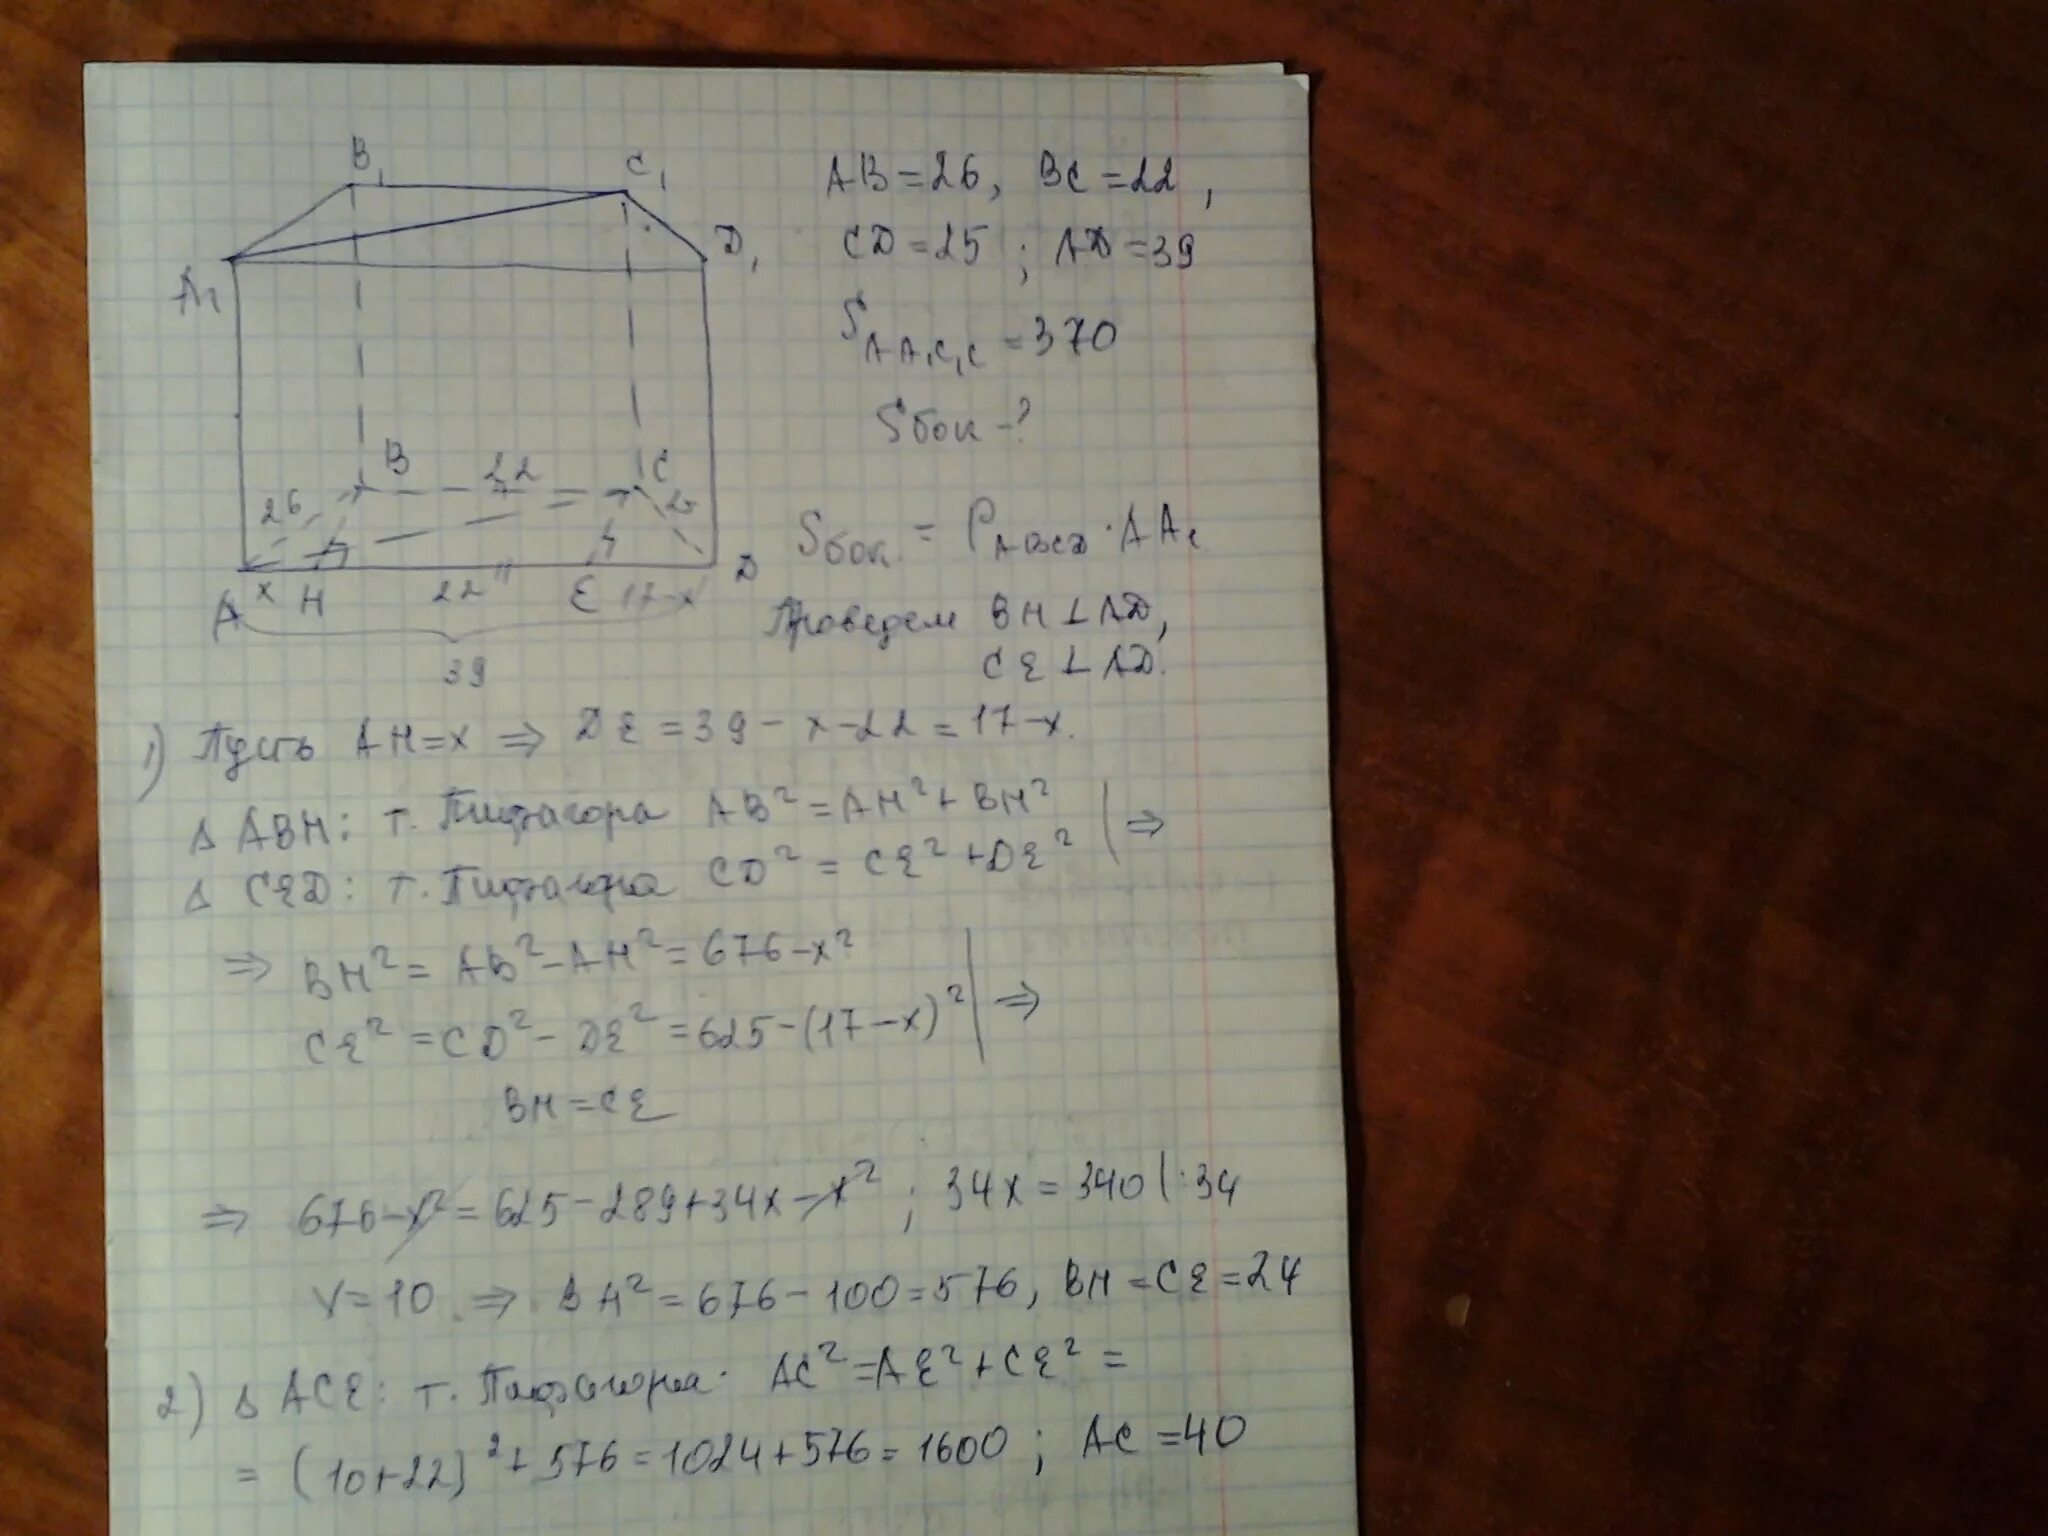 B₁
C₁
A₁
D₁
B
22
C
26
25
A
x
H
22
E
17-x
D
39
AB=26, BC=22,
CD=25; AD=39
S AA₁C₁C = 370
Sбок -?
Sбок. = P ABCD · AA₁
Проведем BH ⊥ AD,
CE ⊥ AD.
1) Пусть AH=x ⇒ DE=39-x-22=17-x.
Δ ABH: т. Пифагора AB²=AH²+BH² | ⇒
Δ CED: т. Пифагора CD²=CE²+DE²
⇒ BH²=AB²-AH²=676-x²
CE²=CD²-DE²=625-(17-x)² | ⇒
BH=CE
⇒ 676-x²=625-289+34x-x²; 34x=340 |:34
x=10 ⇒ BH²=676-100=576, BH=CE=24
2) Δ ACE: т. Пифагора. AC²=AE²+CE²=
=(10+22)²+576=1024+576=1600; AC=40